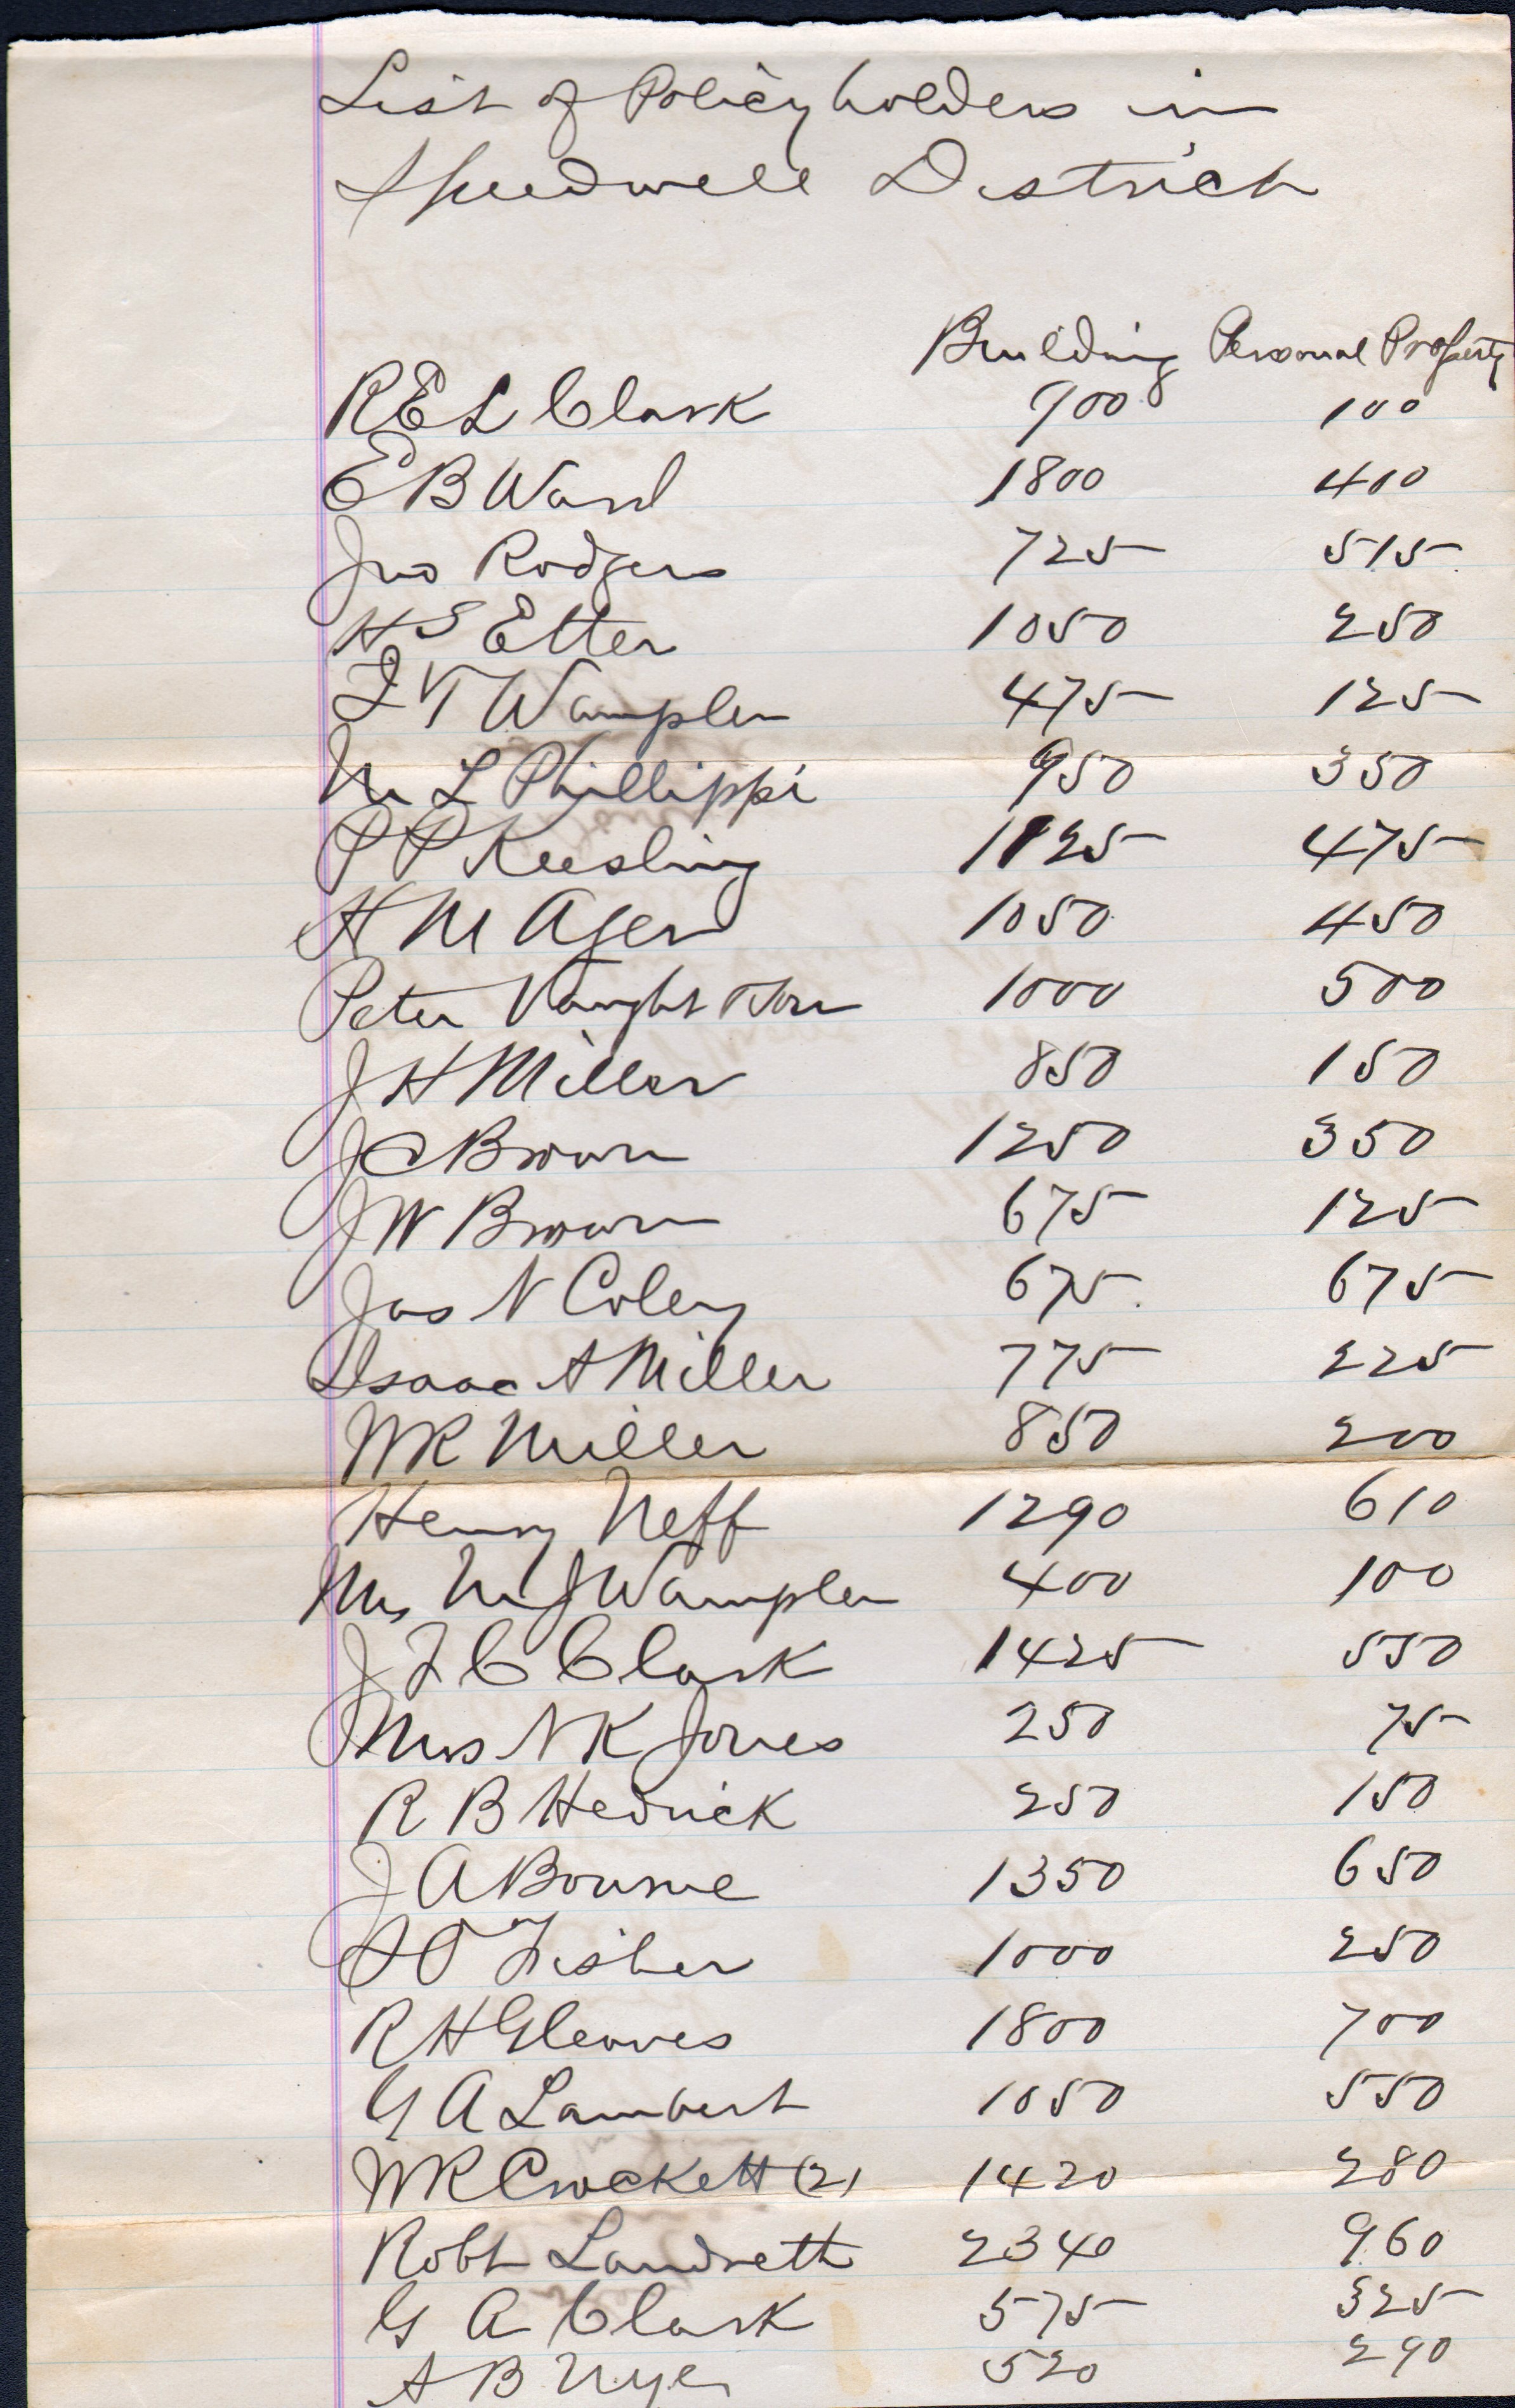 List of Policyholders in
Speedwell District
Building Personal Property
R E L Clark 900 100
E B Ward 1800 400
Jno Rodgers 725 515
H S Etter 1050 250
Wampler 475 125
M L Phillippi 950 350
P P Keesling 1125 475
H M Ager 1050 450
Peter Vaught 1000 500
J H Miller 850 150
J C Brown 1250 350
J W Brown 675 125
Jas N Coley 675 675
Isaac A Miller 775 225
W R Miller 850 200
Henry Neff 1290 610
Mrs M J Wampler 400 100
J F C Clark 1425 550
Mrs N K Jones 250 75
R B Hedrick 250 150
J A Bourne 1350 650
Fisher 1000 250
R H Gleaves 1800 700
G A Lambert 1050 550
W R Crockett (2) 1420 280
Robt Landreth 2340 960
G A Clark 575 325
A B Nye 520 290